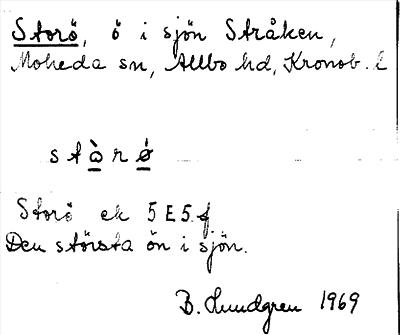 Storö, ö i sjön Stråken,
Moheda sn, Allbo hd, Kronob. l
stòrǿ
Storö ek 5E5f
Den största ön i sjön.
B. Lundgren 1969